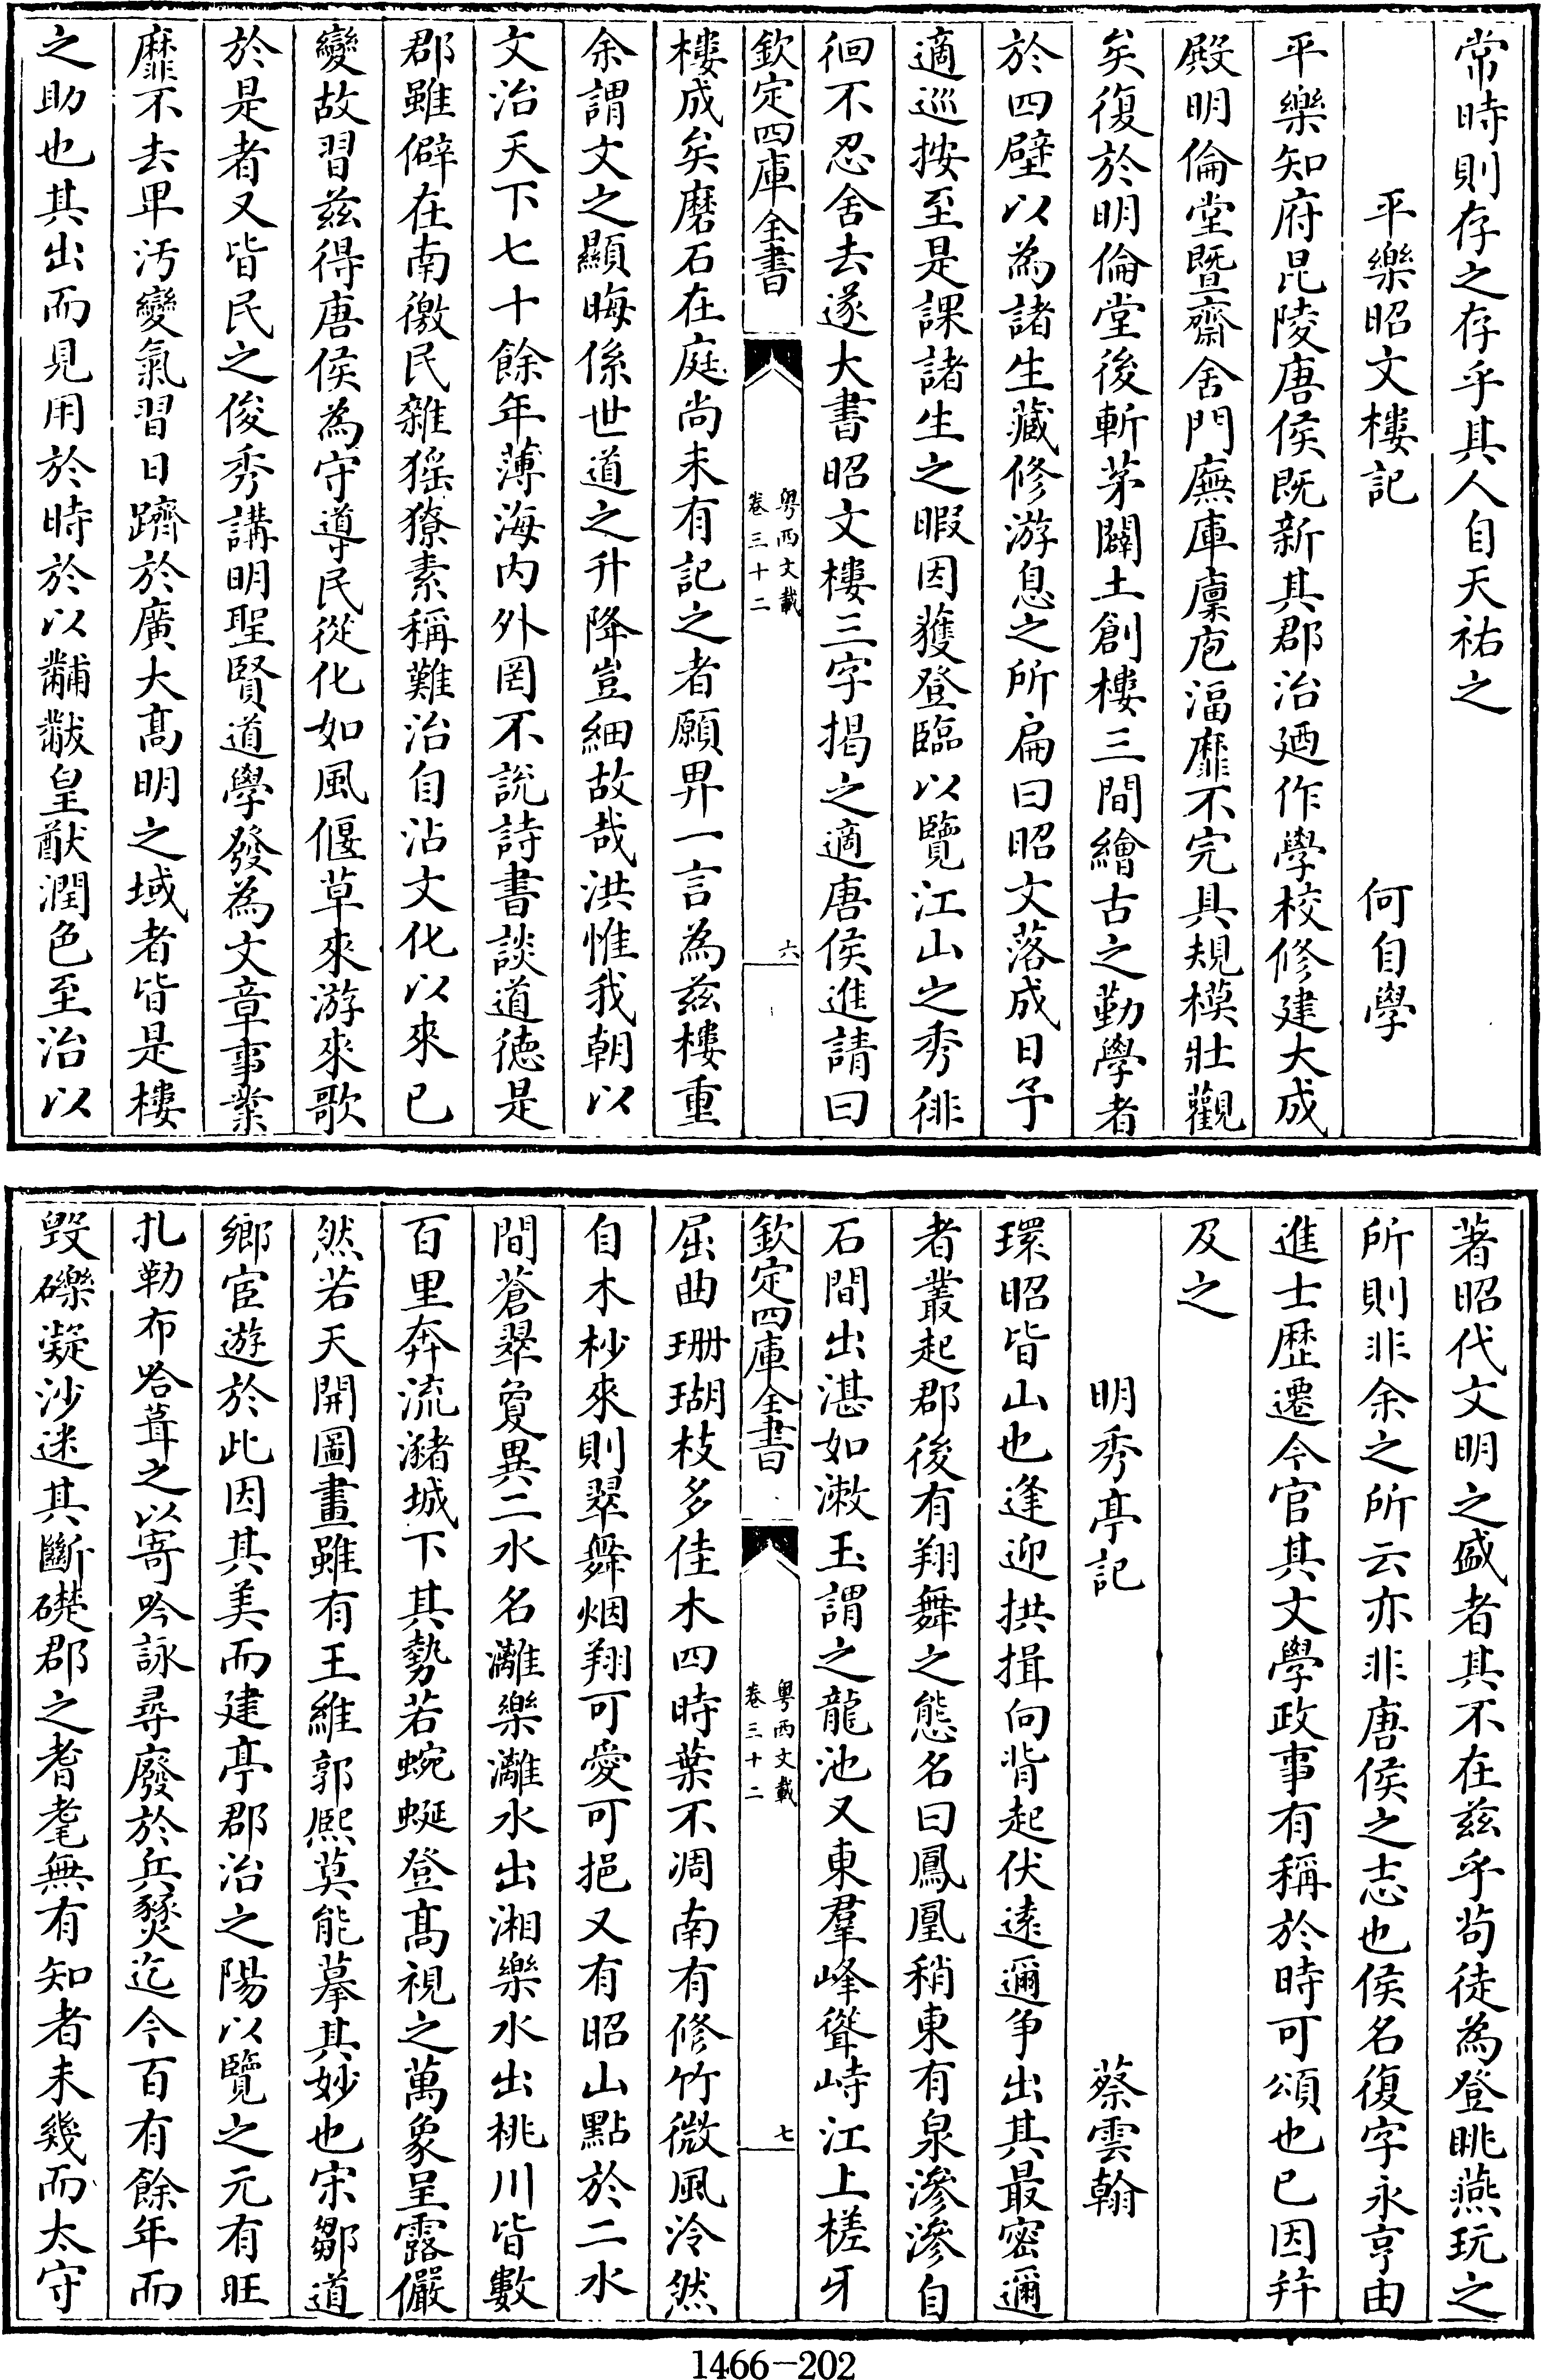 常時則存之存乎其人自天祐之
平樂昭文樓記 何自學
平樂知府昆陵唐侯既新其郡治廼作學校修建大成
殿明倫堂暨齋舍門廡庫廩庖湢靡不完具規模壯觀
矣復於明倫堂後斬茅闢土創樓三間繪古之勤學者
於四壁以為諸生藏修游息之所扁曰昭文落成日予
適巡按至是課諸生之暇因獲登臨以覽江山之秀徘
徊不忍舍去遂大書昭文樓三字揭之適唐侯進請曰
欽定四庫全書 粵西文載 卷三十二 六
樓成矣磨石在庭尚未有記之者願畀一言為茲樓重
余謂文之顯晦係世道之升降豈細故哉洪惟我朝以
文治天下七十餘年薄海內外罔不說詩書談道德是
郡雖僻在南徼民雜猺獠素稱難治自沾文化以來已
變故習茲得唐侯為守導民從化如風偃草來游來歌
於是者又皆民之俊秀講明聖賢道學發為文章事業
靡不去卑汚變氣習日躋於廣大高明之域者皆是樓
之助也其出而見用於時於以黼黻皇猷潤色至治以
著昭代文明之盛者其不在茲乎茍徒為登眺燕玩之
所則非余之所云亦非唐侯之志也侯名復字永亨由
進士歴遷今官其文學政事有稱於時可頌也已因并
及之
明秀亭記 蔡雲翰
環昭皆山也逢迎拱揖向背起伏逺邇争出其最密邇
者叢起郡後有翔舞之態名曰鳳凰稍東有泉滲滲自
石間出湛如漱玉謂之龍池又東羣峰聳峙江上槎牙
欽定四庫全書 粵西文載 卷三十二 七
屈曲珊瑚枝多佳木四時葉不凋南有修竹微風泠然
自木杪來則翠舞烟翔可愛可挹又有昭山點於二水
間蒼翠夐異二水名灕樂灕水出湘樂水出桃川皆數
百里奔流瀦城下其勢若蜿蜒登高視之萬象呈露儼
然若天開圖畫雖有王維郭熙莫能摹其妙也宋鄒道
鄉宦遊於此因其美而建亭郡治之陽以覽之元有旺
扎勒布哈葺之以寄吟詠尋廢於兵燹迄今百有餘年而
毀礫凝沙迷其斷礎郡之耆耄無有知者未幾而太守
1466—202